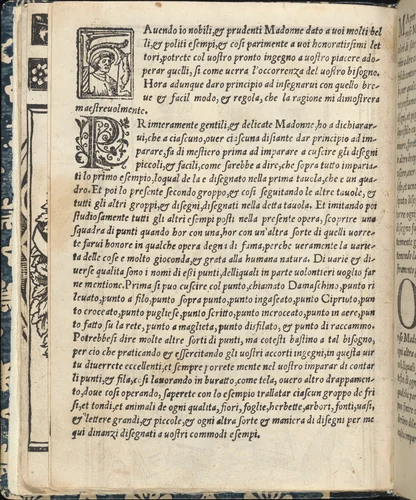 HAuendo io nobili, & prudenti Madonne dato a uoi molti bel
li, & politi esempi, & cosi parimente a uoi honoratissimi let
tori, potrete col uostro pronto ingegno a uostro piacere adop
perar quelli, si come uerra l'occorrenza del uostro bisogno.
Hora adunque daro principio ad insegnarui con quello bre
ue & facil modo, & regola, che la ragione mi dimostrera
maestreuolmente.
PRimeramente gentili, & delicate Madonne, ho a dichiarar
ui, che a ciascuno, ouer ciascuna disiante dar principio ad im
parare, fa di mestiero prima ad imparare a cuscire gli disegni
piccoli, & facili, come sarebbe a dire, che sopra tutto impara
ti lo primo esempio, loqual de la e disegnato nella prima tauola, che e un qua
dro. Et poi lo presente secondo groppo, & cosi seguitando le altre tauole, &
tutti gli altri groppi, & disegni, disegnati nella detta tauola. Et imitando poi
studiosamente tutti gli altri esempi posti nella presente opera, scoprire una
squadra di punti quando hor con una, hor con un'altra sorte di quelli uorre
te farui honore in qualche opera degna di fama, perche ueramente la uarie
ta delle cose e molto gioconda, & grata alla humana natura. Di uarie & di
uerse qualita sono i nomi di essi punti, delliquali in parte uolontieri uoglio far
ne mentione. Prima si puo cuscire col punto, chiamato Damaschino, punto ri
leuato, punto a filo, punto sopra punto, punto ingaseato, punto Ciprioto, pun
to croceato, punto pugliese, punto scritto, punto incroceato, punto in aere, pun
to fatto su la rete, punto a maglieta, punto disfilato, & punto di raccammo.
Potrebbesi dire molte altre sorti di punti, ma cotesti bastino a tal bisogno,
per cio che praticando & essercitando gli uostri accorti ingegni, in questa uir
tu diuerrete eccellenti, et sempre potrete mente nel uostro imparar di contar
li punti, & fila, cosi lauorando in buratto, come tela, ouero altro drappamen
to, doue cosi operando, saperete con lo esempio trallatar ciascun groppo de fri
si, et tondi, et animali de ogni qualita, fiori, foglie, herbette, arbori, fonti, uasi,
& lettere grandi, & piccole, & ogni altra sorte & maniera di disegni per me
qui dinanzi disegnati a uostri commodi esempi.